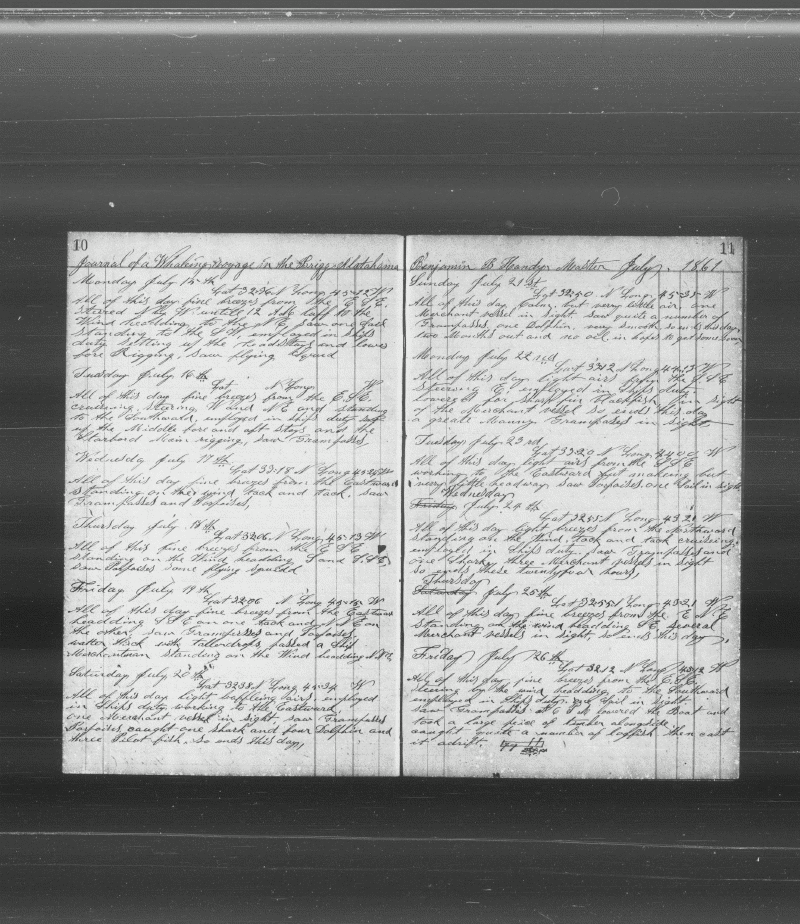 10
Journal of a Whaleing Voyage in the Brigg Alatahama
Monday July 15th
Lat 32.36 N Long 45.12 W
All of this day fine breezes from the E.S.E.
Steered N by W until 12 A.M. luff to the
Wind headding to the N E saw one Sail
Standing to the S employed in Ships
duty Setting up the headStays and lower
fore Rigging, Saw flying Squid
Tuesday July 16th
Lat N Long W
All of this day fine breezes from the E.S.E.
cruiseing, steering W and N E and standing
to the Southward, employed in ships duty set
up the Middle fore and aft stays and the
Starbord Main rigging, Saw Grampusses
Wednesday July 17th
Lat 33.18 N Long 45.24 W
All of this day fine breezes from the Eastward
Standing on the wind tack and tack, saw
Grampusses and Porpoises,
Thursday July 18th
Lat 32.06 N Long 45.13 W
All of this fine breezes from the E S E
standing on the Wind headding S and
saw Porpoises some flying squidd
Friday July 19th
Lat 32.06 N Long 45.15 W
All of this day fine breezes from the Eastward
headding S E on one tack and N N E on
the other, Saw Grampusses and Porpoises,
water thick with passed a Ship
Merchantman standing on the Wind headding N N E,
Saturday July 20th
Lat 32.38 N Long 45.34 W
All of this day light baffling airs, employed
in Ships duty working to the Eastward,
one Merchant vessel in sight, saw Grampusses
Porpoises, caught one shark and four Dolphin and
three Pilot fish, So ends this day,
11
Benjamin B Handy Master July, 1861
Sunday July 21st
Lat 32.50 N Long, 45.35 W
All of this day Calm, but very little air one
Merchant vessel in sight, saw quite a number of
Grampusses, one Dolphin, very smooth so ends this day,
two Months out and no oil, in hopes to get some soon
Monday July 22nd
Lat 33.12 N Long 44.13 W
All of this day light airs from the S S E
Steering E employed in Ships duty
Lowered for Shark fin Blackfish fin Sight
of the Merchant vessel so ends this day
a greate Manny Grampusses in sight
Tuesday July 23rd
Lat 33.20 N Long, 44.00 W
All of this day light airs from the S S E
working to the Eastward but makeing but
very little headway Saw Porpoises one Sail in sight
Wednesday
Friday July 24th
Lat 32.55 N Long 43.21 W
All of this day light breezes from the Northward
standing on the Wind tack and tack cruiseing
employed in Ships duty saw Grampusses and
one Shark, three Merchant vessels in sight
so ends these twentyfour hours,
Thursday
Saturday July 25th
Lat 32.55 N Long, 43.21 W
All of this day fine breezes from the E N E
Standing on the wind headding S E Several
Merchant vessels in sight, so ends this day,
Friday July 26th
Lat 32.12 N Long 43.12 W
All of this day fine breezes from the E.S.E.
by the wind headding to the Southward
employed in Ships duty, one Sail in Sight
Saw Grampusses at 6 P.M. lowered the Boat and
took a large piece of timber alongside
caught quite a number of logfish then cast
it adrift.